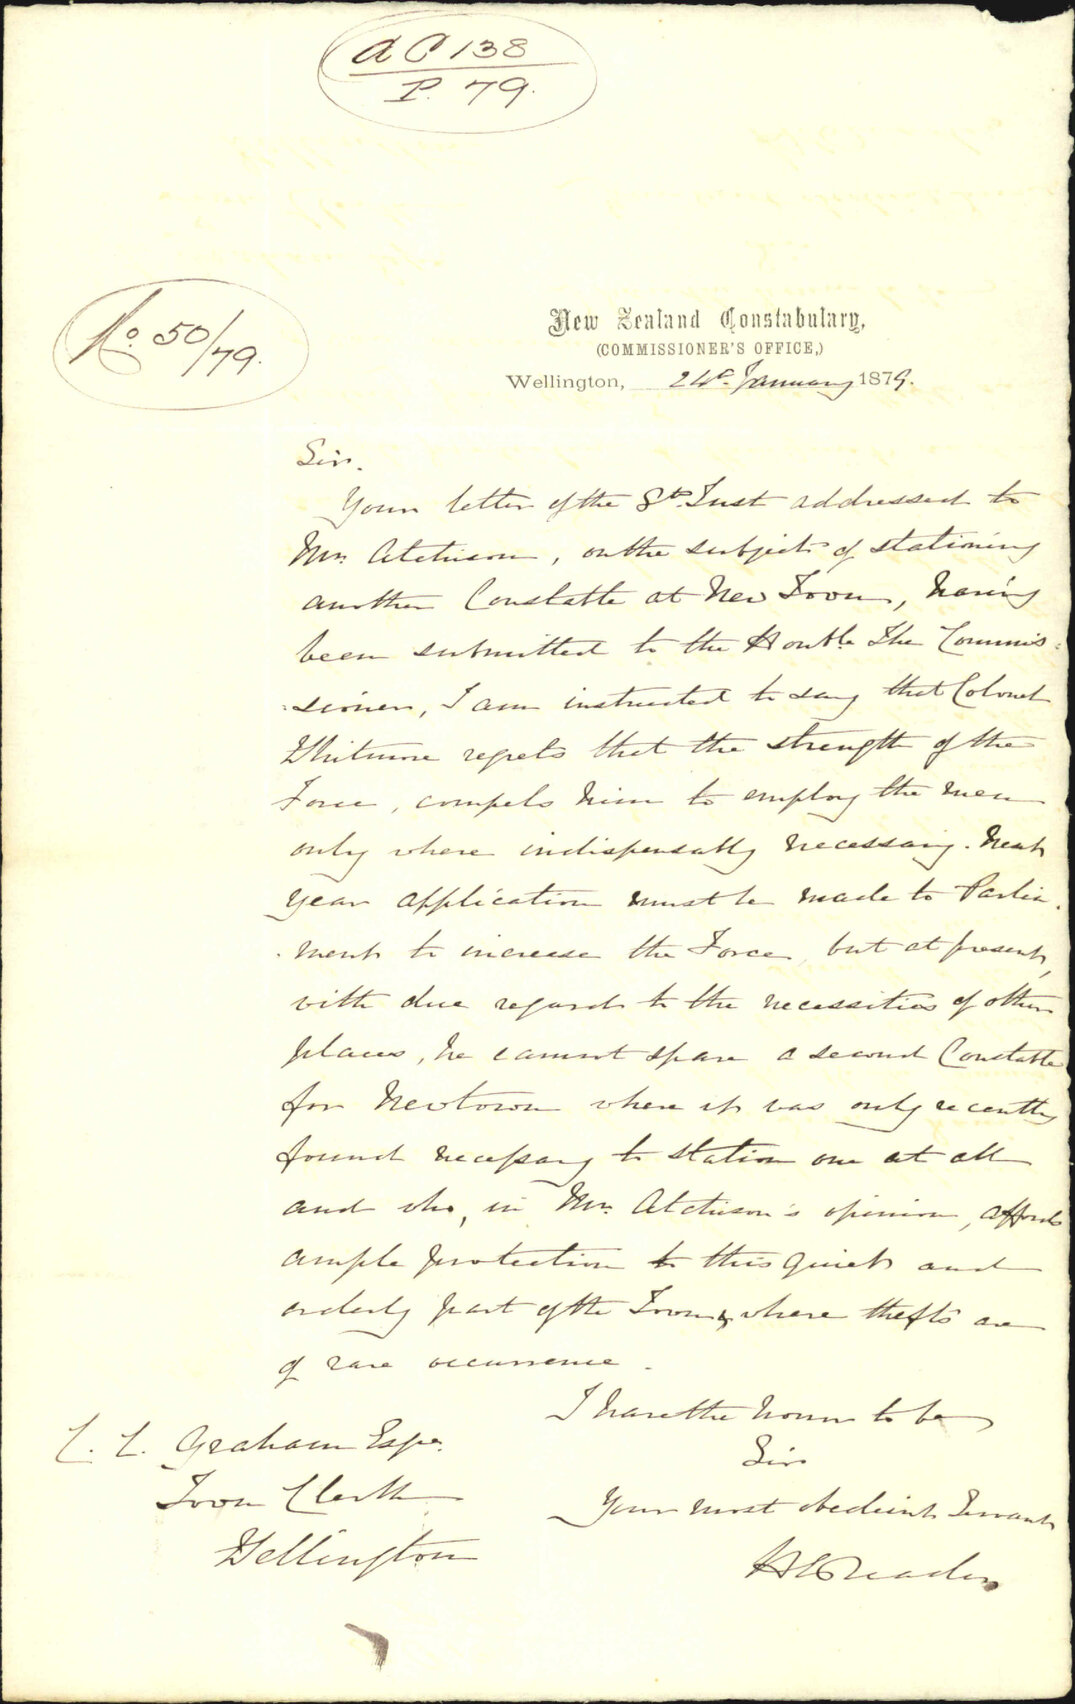 A C 138
P. 79.
No. 50/79.
New Zealand Constabulary,
(COMMISSIONER'S OFFICE,)
Wellington, 24th January 1879.
Sir.
Your letter of the 8th Inst addressed to
Mr. Atchison, on the subject of stationing
another Constable at New Town, having
been submitted to the Honble. The Commis=
=sioner, I am instructed to say that Colonel
Whitmore regrets that the strength of the
Force, compels him to employ the men
only where indispensably necessary. Next
year application must be made to Parlia-
-ment to increase the Force, but at present,
with due regard to the necessities of other
places, he cannot spare a second Constable
for Newtown where it was only recently
found necessary to station one at all
and who, in Mr. Atchison's opinion, affords
ample protection to this quiet and
orderly part of the Town, where thefts are
of rare occurrence.
I have the honor to be
Sir
Your most obedient Servant
C. C. Graham Esqre.
Town Clerk
Wellington